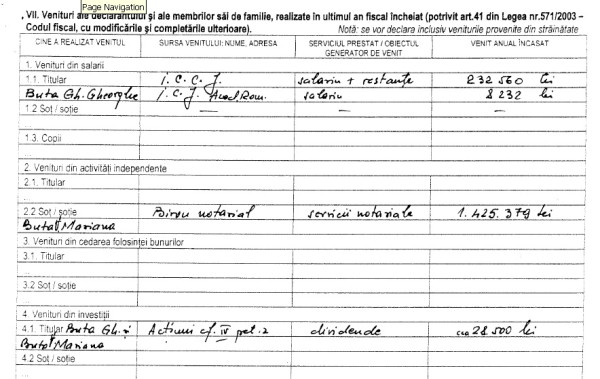 Page Navigation
. VII. Venituri ale declarantului și ale membrilor săi de familie, realizate în ultimul an fiscal încheiat (potrivit art.41 din Legea nr.571/2003 –
Codul fiscal, cu modificările și completările ulterioare). Notă: se vor declara inclusiv veniturile provenite din străinătate
CINE A REALIZAT VENITUL SURSA VENITULUI: NUME, ADRESA SERVICIUL PRESTAT / OBIECTUL GENERATOR DE VENIT VENIT ANUAL ÎNCASAT
1. Venituri din salarii
1.1. Titular I. C. C. J. salariu + restanțe 232 560 lei
Buta Gh. Gheorghe I. C. J. Acad. Rom. salariu 8 232 lei
1.2 Soț / soție — — —
1.3. Copii
2. Venituri din activități independente
2.1. Titular
2.2 Soț / soție Birou notarial servicii notariale 1. 425. 379 lei
Buta Mariana
3. Venituri din cedarea folosinței bunurilor
3.1. Titular
3.2 Soț / soție
4. Venituri din investiții
4.1. Titular Buta Gh. și Acțiuni cf. IV pct. 2 dividende cca 28 500 lei
Buta Mariana
4.2 Soț / soție